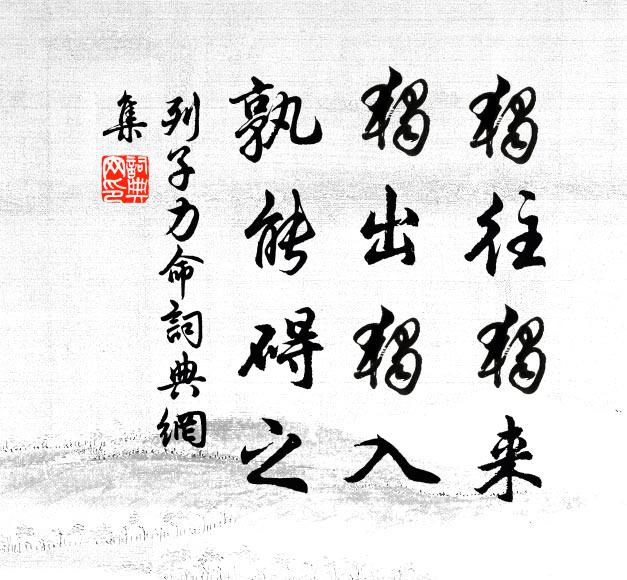 獨往獨来
獨出獨入
孰能碍之
列子力命詞典網
集
詞典
网印